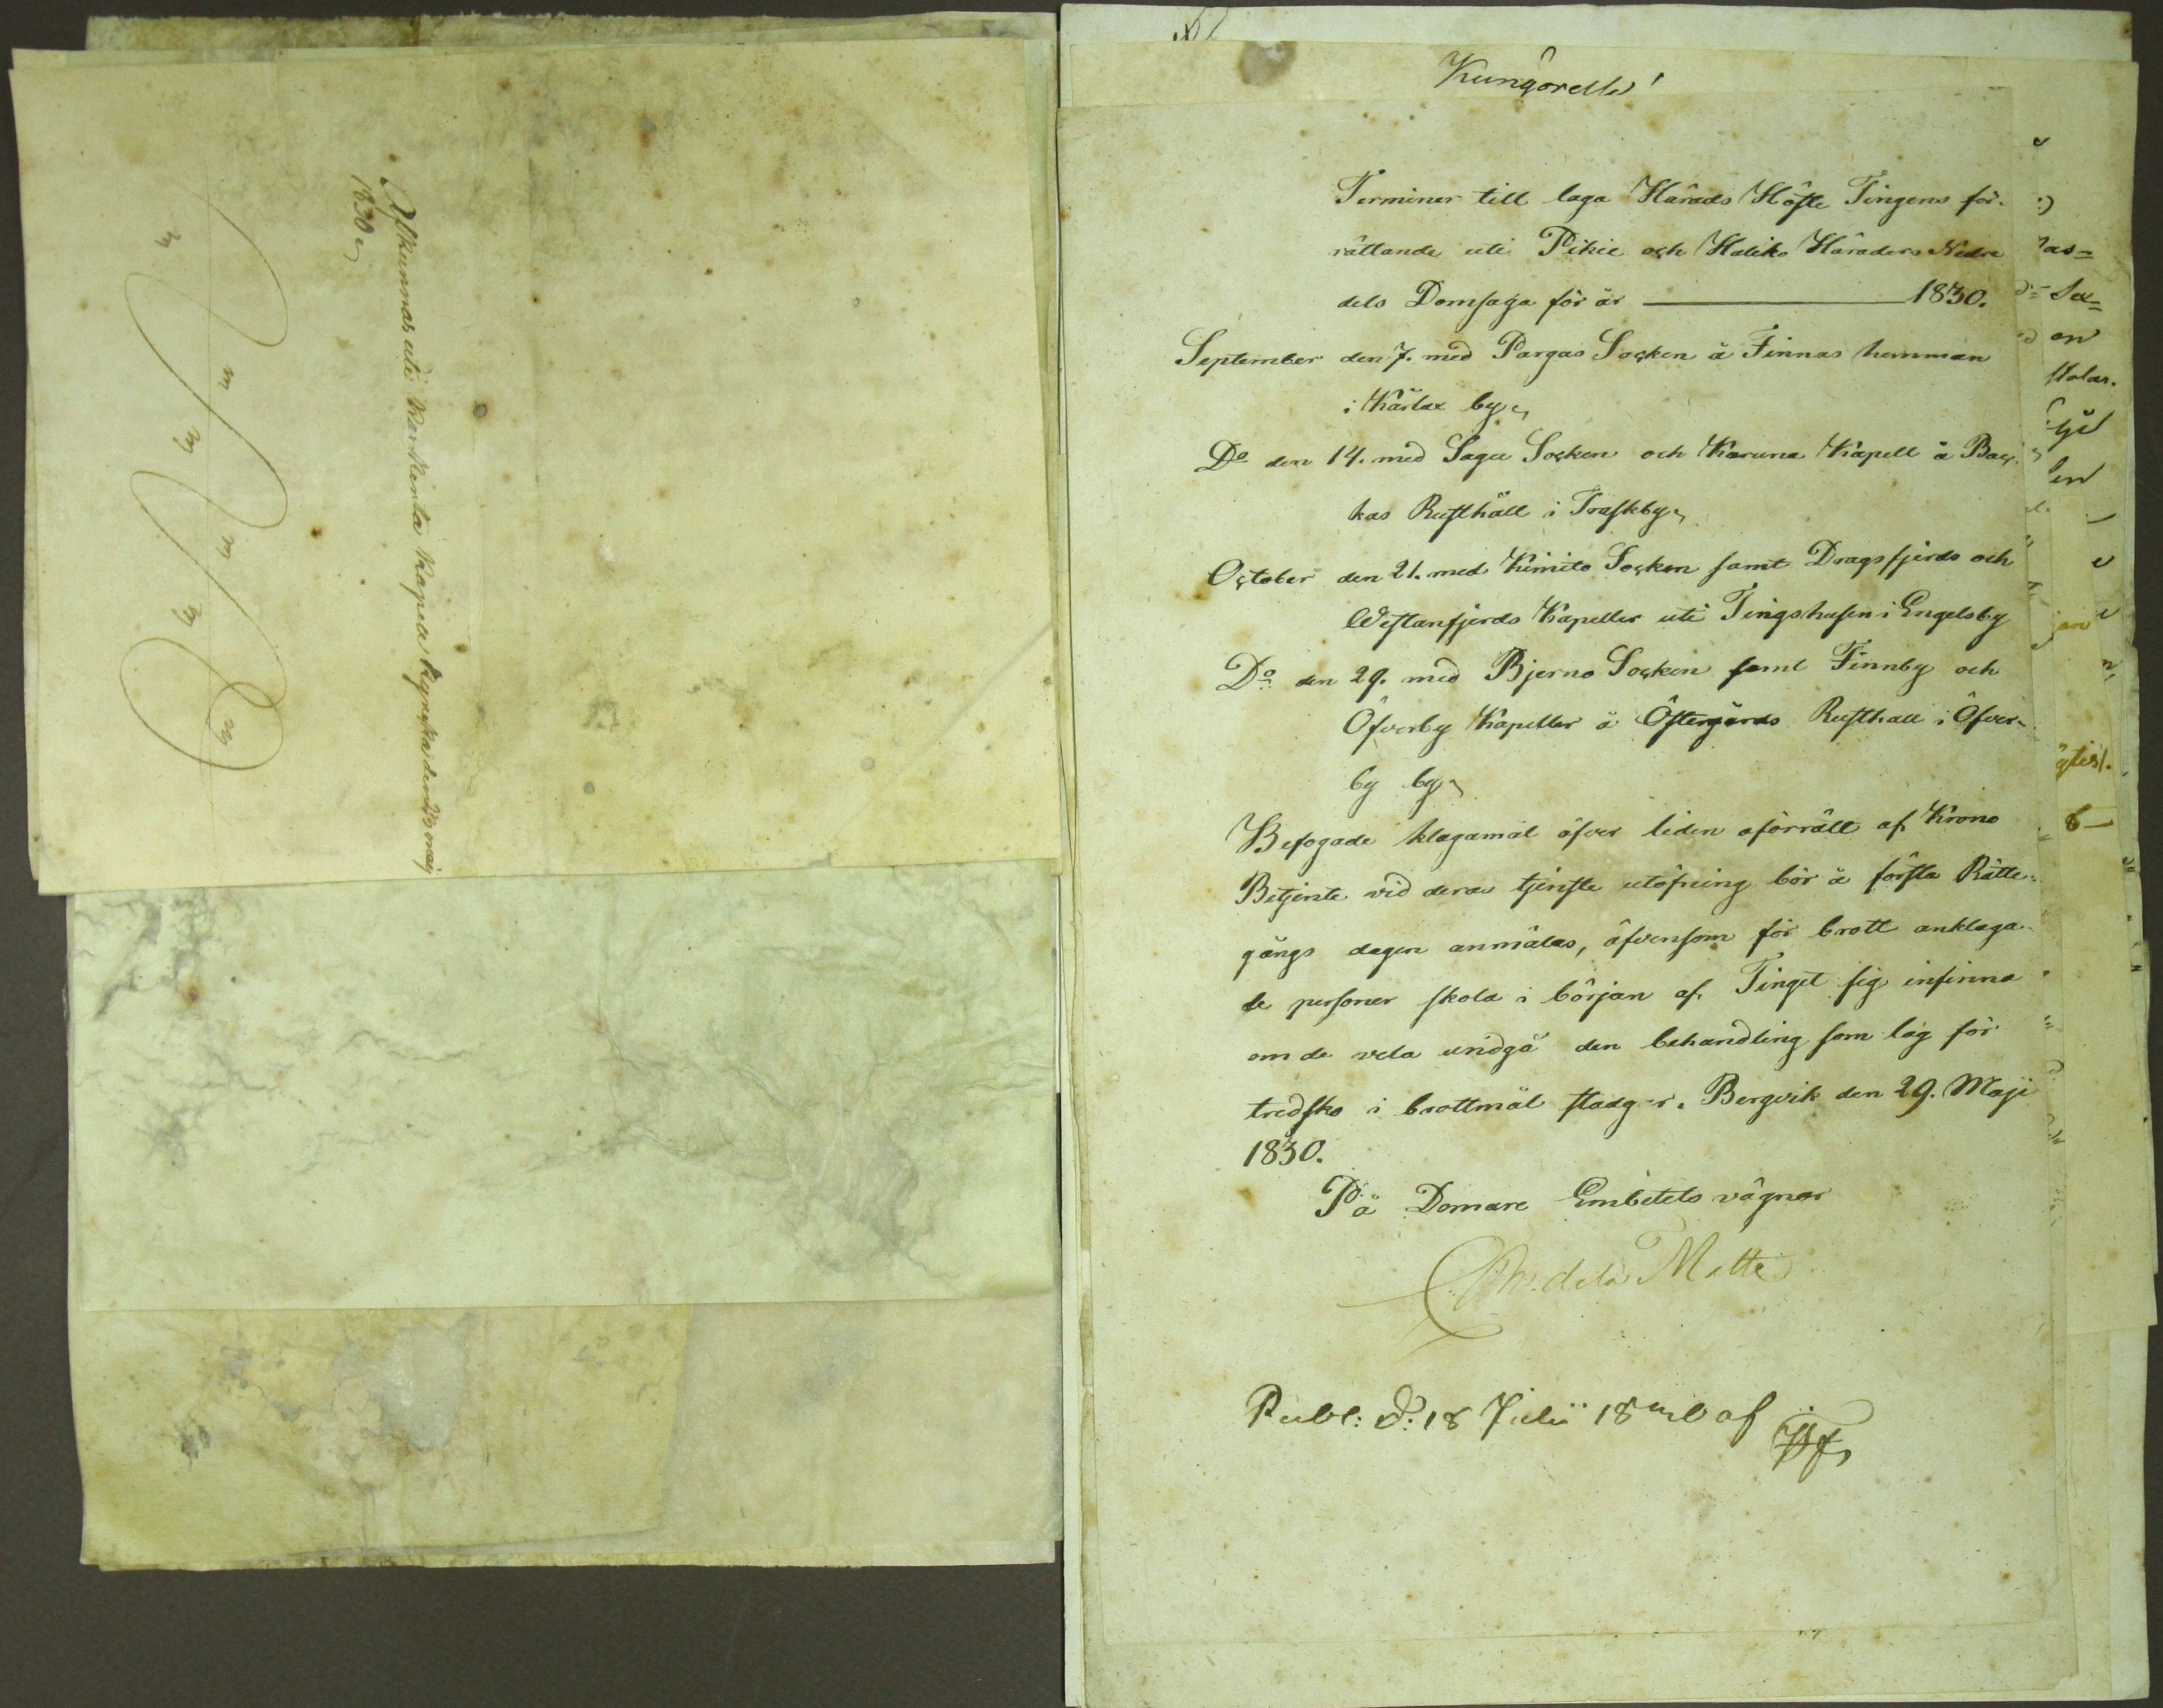 Afkunnas uti Karskenla Kapell Kyrcka den 23 maij
1830
Kungörelse
Terminer till laga Härads Höste Tingens för-
rättande uti Pikie och Haliko Häraders Nedre
dels Domsaga för år 1830.
September den 7. med Pargas Socken å Finnas hemman
i Kärlax by
Do den 14. med Sagu Socken och Karuna Kapell å Bac-
kas Rusthåll i Traskby
October den 21. med Kimito Socken samt Dragsfjerds och
Westanfjerds Kapeller uti Tingshusen i Engelsby
Do den 29. med Bjerno Socken samt Finnby och
Öfverby Kapeller å Östergårds Rusthåll i Öfver-
by by
Befogade klagamål öfver liden oförrätt af Krono
Betjente vid deras tjenste utöfning bör å första Rätte-
gångs dagen anmälas, äfvensom för brott anklaga-
de personer skola i början af Tinget sig infinna
om de vela undgå den behandling som lag för
tredsko i brottmål stadgar. Bergvik den 29. Maji
1830.
På Domare Embetets vägnar
Publ: d: 18 Julii 18 af
as=
Sa=
en
stolar.
len